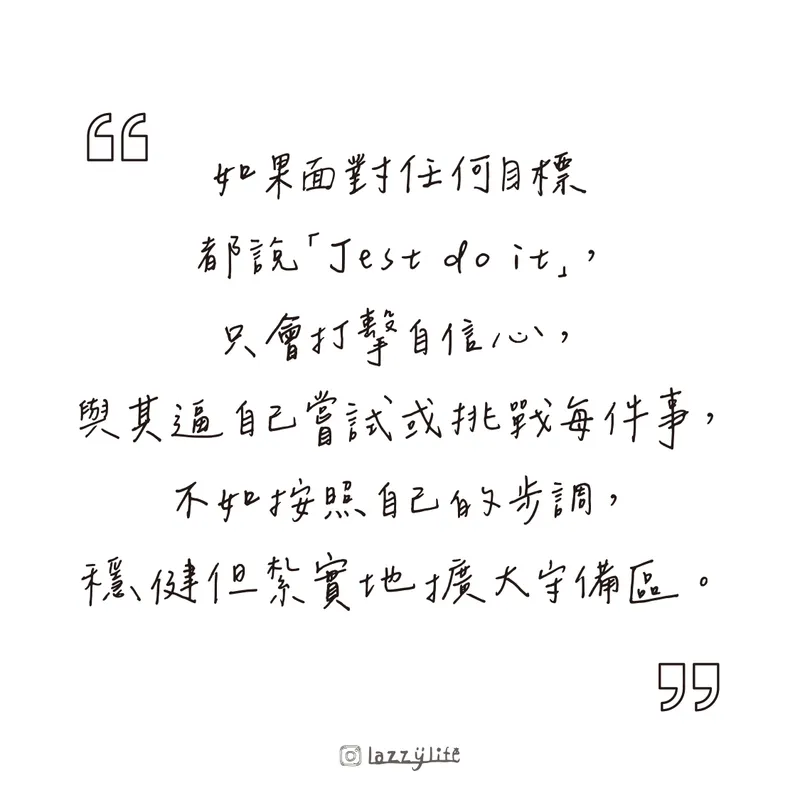 如果面對任何目標
都說「Jest do it」,
只會打擊自信心,
與其逼自己嘗試或挑戰每件事,
不如按照自己的步調,
穩健但紮實地擴大守備區。
lazzylife